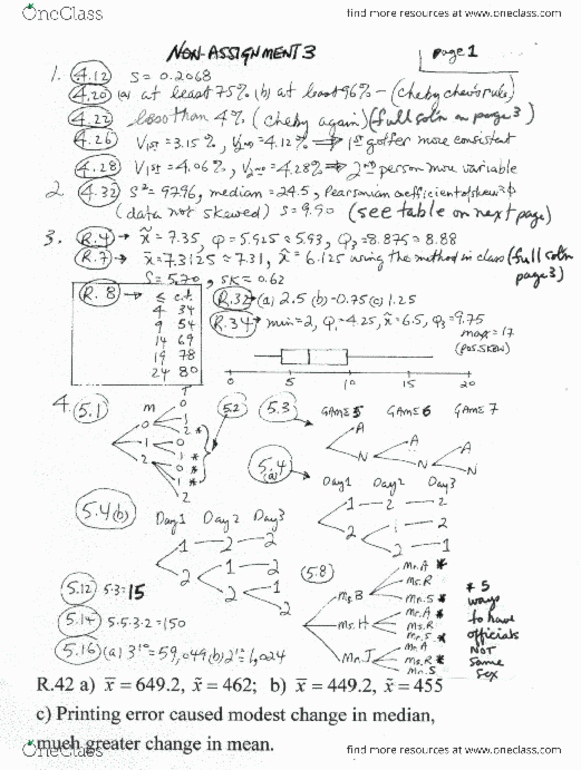 OneClass
find more resources at www.oneclass.com
NON-ASSIGNMENT 3
page 1
1. 4.12 S = 0.2068
4.20 (a) at least 75% (b) at least 96% - (chebychev's rule)
4.22 less than 4% (cheby again) (full soln on page 3)
4.26 V1st = 3.15%, V2nd = 4.12% ⇒ 1st golfer more consistent
4.28 V1st = 4.06%, V2nd = 4.28% ⇒ 2nd person more variable
2. 4.32 S² = 97.96, median = 24.5, Pearsonian coefficient of skew = φ
(data not skewed) S = 9.90 (see table on next page)
3. R.4 → x̃ = 7.35, Q₁ = 5.925 ≈ 5.93, Q₃ = 8.875 ≈ 8.88
R.7 → x̄ = 7.3125 ≈ 7.31, x̃ = 6.125 using the method in class (full soln
page 3)
S = 5.70, SK = 0.62
R.8 → ≤ c.f.
4 34
9 54
14 69
19 78
24 80
R.32 → (a) 2.5 (b) -0.75 (c) 1.25
R.34 → min = 2, Q₁ = 4.25, x̃ = 6.5, Q₃ = 9.75
max = 17
(POS. SKEW)
0 5 10 15 20
4. 5.1
M T
0 1 2
0 1 2 *
0 * 1 * 2
5.2
5.3 GAME 5 GAME 6 GAME 7
A A A
N N N
5.4 (a) Day 1 Day 2 Day 3
1 2 2
2 1 2
2 1
5.4(b) Day 1 Day 2 Day 3
1 2 2
2 1 2
2 1
2
5.8
Ms. B Mr. A *
Ms. R
Mr. S *
Ms. H Mr. A *
Ms. R
Mr. S *
Mr. J Mr. A
Ms. R *
Mr. S
* 5
ways
to have
officials
NOT
same
sex
5.12 5·3 = 15
5.14 5·5·3·2 = 150
5.16 (a) 3¹⁰ = 59,049 (b) 2¹⁰ = 1,024
R.42 a) x̄ = 649.2, x̃ = 462; b) x̄ = 449.2, x̃ = 455
c) Printing error caused modest change in median,
much greater change in mean.
OneClass
find more resources at www.oneclass.com